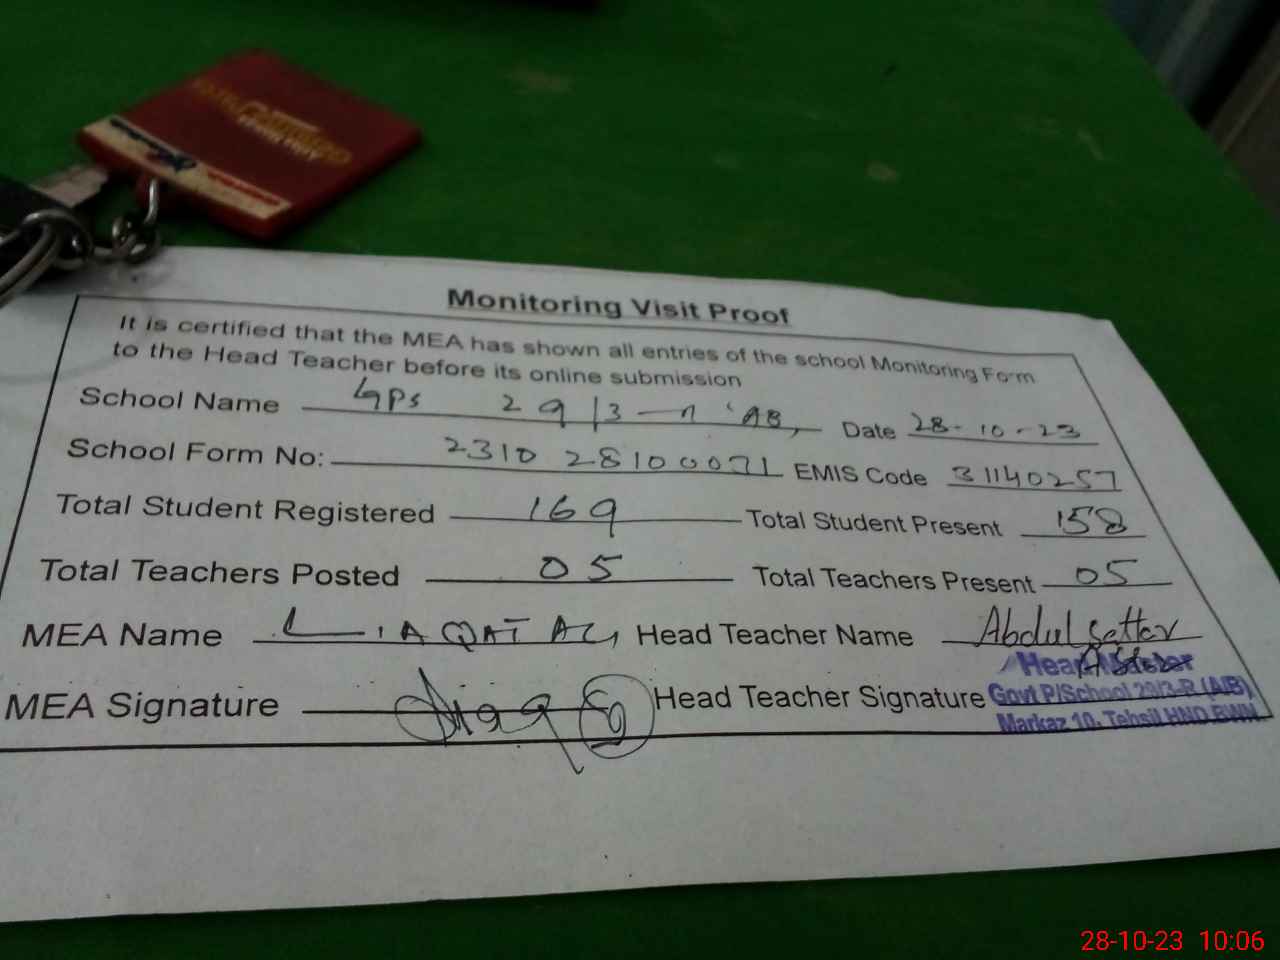 Monitoring Visit Proof
It is certified that the MEA has shown all entries of the school Monitoring Form
to the Head Teacher before its online submission
School Name GPS 29/3-R AB, Date 28-10-23
School Form No: 231028100071 EMIS Code 31140257
Total Student Registered 169 Total Student Present 158
Total Teachers Posted 05 Total Teachers Present 05
MEA Name LIAQAT ALI Head Teacher Name Abdul Sattar
MEA Signature Head Teacher Signature
Govt P/School 29/3-R (A/B)
Markaz 10, Tehsil HND BWN
28-10-23 10:06